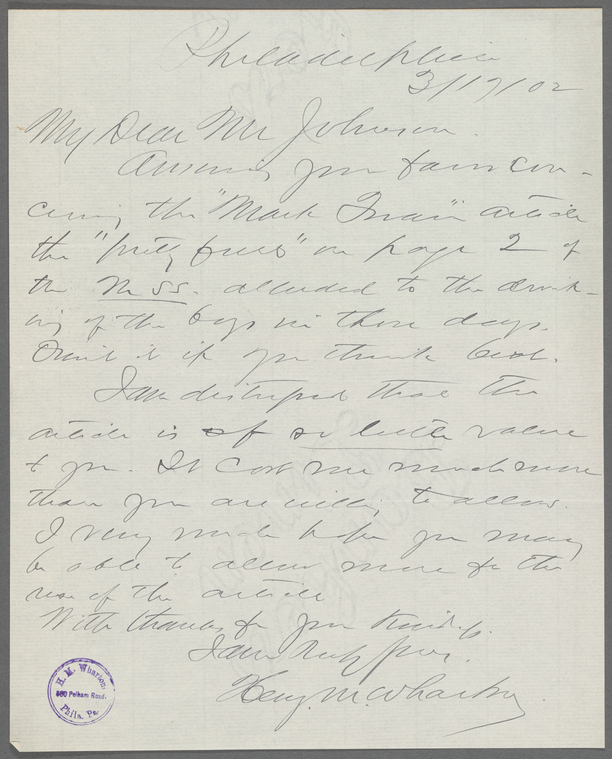 Philadelphia
3/17/02
My Dear Mr Johnson.
Answering your favor con-
cerning the "Mark Twain" article
the "pretty free" on page 2 of
the Mss. alluded to the drink-
ing of the boys in those days.
Omit it if you think best.
I am distressed that the
article is of so little value
to you. It cost me much more
than you are willing to allow.
I very much hope you may
be able to allow more for the
use of the article
With thanks for your kindness.
I am
Henry. M. Wharton
H. M. Wharton.
Pelham Road.
Phila. Pa.